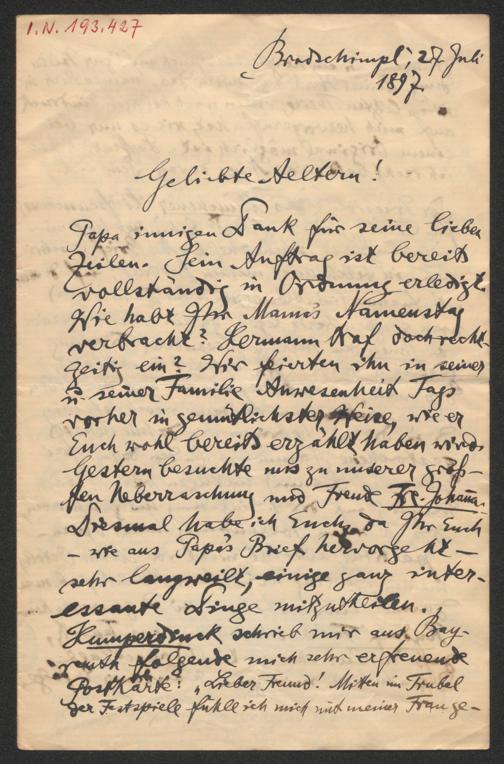 I.N. 193.427
Bradschimpl, 27 Juli
1897
Geliebte Aeltern!
Papa innigen Dank für seine lieben
Zeilen. Sein Auftrag ist bereits
vollständig in Ordnung erledigt.
Wie habt Ihr Mama's Namenstag
verbracht? Hermann traf doch recht-
zeitig ein? Wir feierten ihn in seiner
u seiner Familie Anwesenheit Tags
vorher in gemütlichster Weise, wie er
Euch wohl bereits erzählt haben wird.
Gestern besuchte uns zu unserer gröſ-
ſten Ueberraschung und Freude Fr. Johanna.
Diesmal habe ich Euch, da Ihr Euch
– wie aus Papa's Brief hervorgeht –
sehr langweilt, einige ganz inter-
essante Dinge mitzutheilen.
Humperdinck schrieb mir aus Bay-
reuth folgende mich sehr erfreuende
Postkarte: „Lieber Freund! Mitten im Trubel
der Festspiele fühle ich mich mit meiner Frau ge-